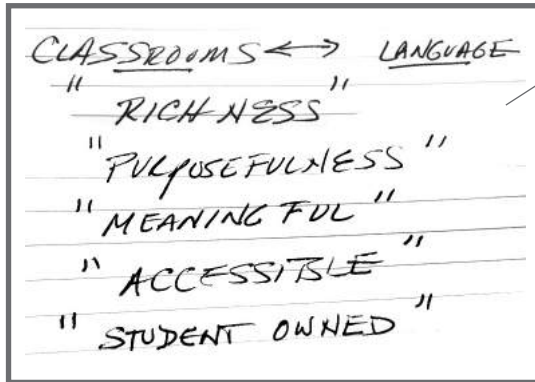 CLASSROOMS <-> LANGUAGE
"RICHNESS"
"PURPOSEFULNESS"
"MEANINGFUL"
"ACCESSIBLE"
"STUDENT OWNED"